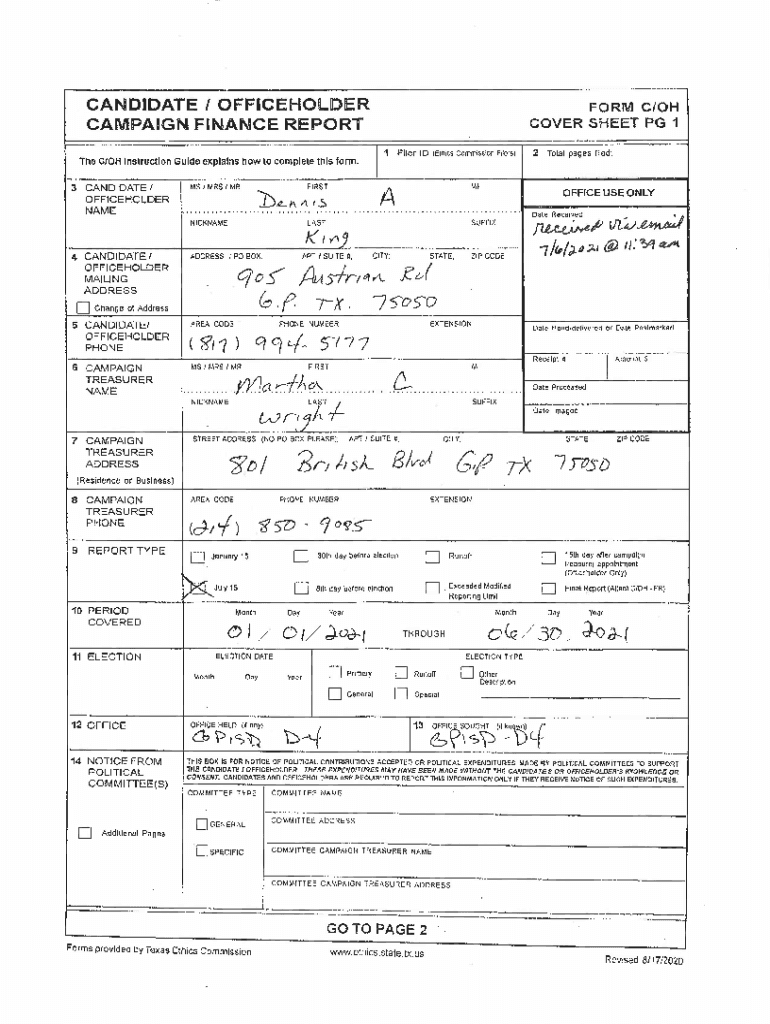 CANDIDATE / OFFICEHOLDER
CAMPAIGN FINANCE REPORT
FORM C/OH
COVER SHEET PG 1
The C/OH Instruction Guide explains how to complete this form.
1 Filer ID (Ethics Commission Filers)
2 Total pages filed:
3 CANDIDATE /
OFFICEHOLDER
NAME
MS / MRS / MR FIRST MI
Dennis A
NICKNAME LAST SUFFIX
King
OFFICE USE ONLY
Date Received
received via email
7/6/2021 @ 11:39 am
4 CANDIDATE /
OFFICEHOLDER
MAILING
ADDRESS
Change of Address
ADDRESS / PO BOX; APT / SUITE #; CITY; STATE; ZIP CODE
905 Austrian Rd
G.P. TX. 75050
5 CANDIDATE/
OFFICEHOLDER
PHONE
AREA CODE PHONE NUMBER EXTENSION
(817) 994-5177
Date Hand-delivered or Date Postmarked
Receipt # Amount $
6 CAMPAIGN
TREASURER
NAME
MS / MRS / MR FIRST MI
Martha C
NICKNAME LAST SUFFIX
Wright
Date Processed
Date Imaged
7 CAMPAIGN
TREASURER
ADDRESS
(Residence or Business)
STREET ADDRESS (NO PO BOX PLEASE); APT / SUITE #; CITY; STATE ZIP CODE
801 British Blvd G.P TX 75050
8 CAMPAIGN
TREASURER
PHONE
AREA CODE PHONE NUMBER EXTENSION
(214) 850-9085
9 REPORT TYPE
January 15 30th day before election Runoff 15th day after campaign
treasurer appointment
(Officeholder Only)
July 15 8th day before election Exceeded Modified
Reporting Limit
Final Report (Attach C/OH - FR)
10 PERIOD
COVERED
Month Day Year Month Day Year
01/ 01/2021 THROUGH 06/30.2021
11 ELECTION
ELECTION DATE ELECTION TYPE
Month Day Year
Primary Runoff Other
Description
General Special
12 OFFICE
OFFICE HELD (if any)
GPISD D-4
13 OFFICE SOUGHT (if known)
GPISD-D4
14 NOTICE FROM
POLITICAL
COMMITTEE(S)
Additional Pages
THIS BOX IS FOR NOTICE OF POLITICAL CONTRIBUTIONS ACCEPTED OR POLITICAL EXPENDITURES MADE BY POLITICAL COMMITTEES TO SUPPORT
THE CANDIDATE / OFFICEHOLDER. THESE EXPENDITURES MAY HAVE BEEN MADE WITHOUT THE CANDIDATE'S OR OFFICEHOLDER'S KNOWLEDGE OR
CONSENT. CANDIDATES AND OFFICEHOLDERS ARE REQUIRED TO REPORT THIS INFORMATION ONLY IF THEY RECEIVE NOTICE OF SUCH EXPENDITURES.
COMMITTEE TYPE COMMITTEE NAME
GENERAL
SPECIFIC
COMMITTEE ADDRESS
COMMITTEE CAMPAIGN TREASURER NAME
COMMITTEE CAMPAIGN TREASURER ADDRESS
GO TO PAGE 2
Forms provided by Texas Ethics Commission
www.ethics.state.tx.us
Revised 8/17/2020